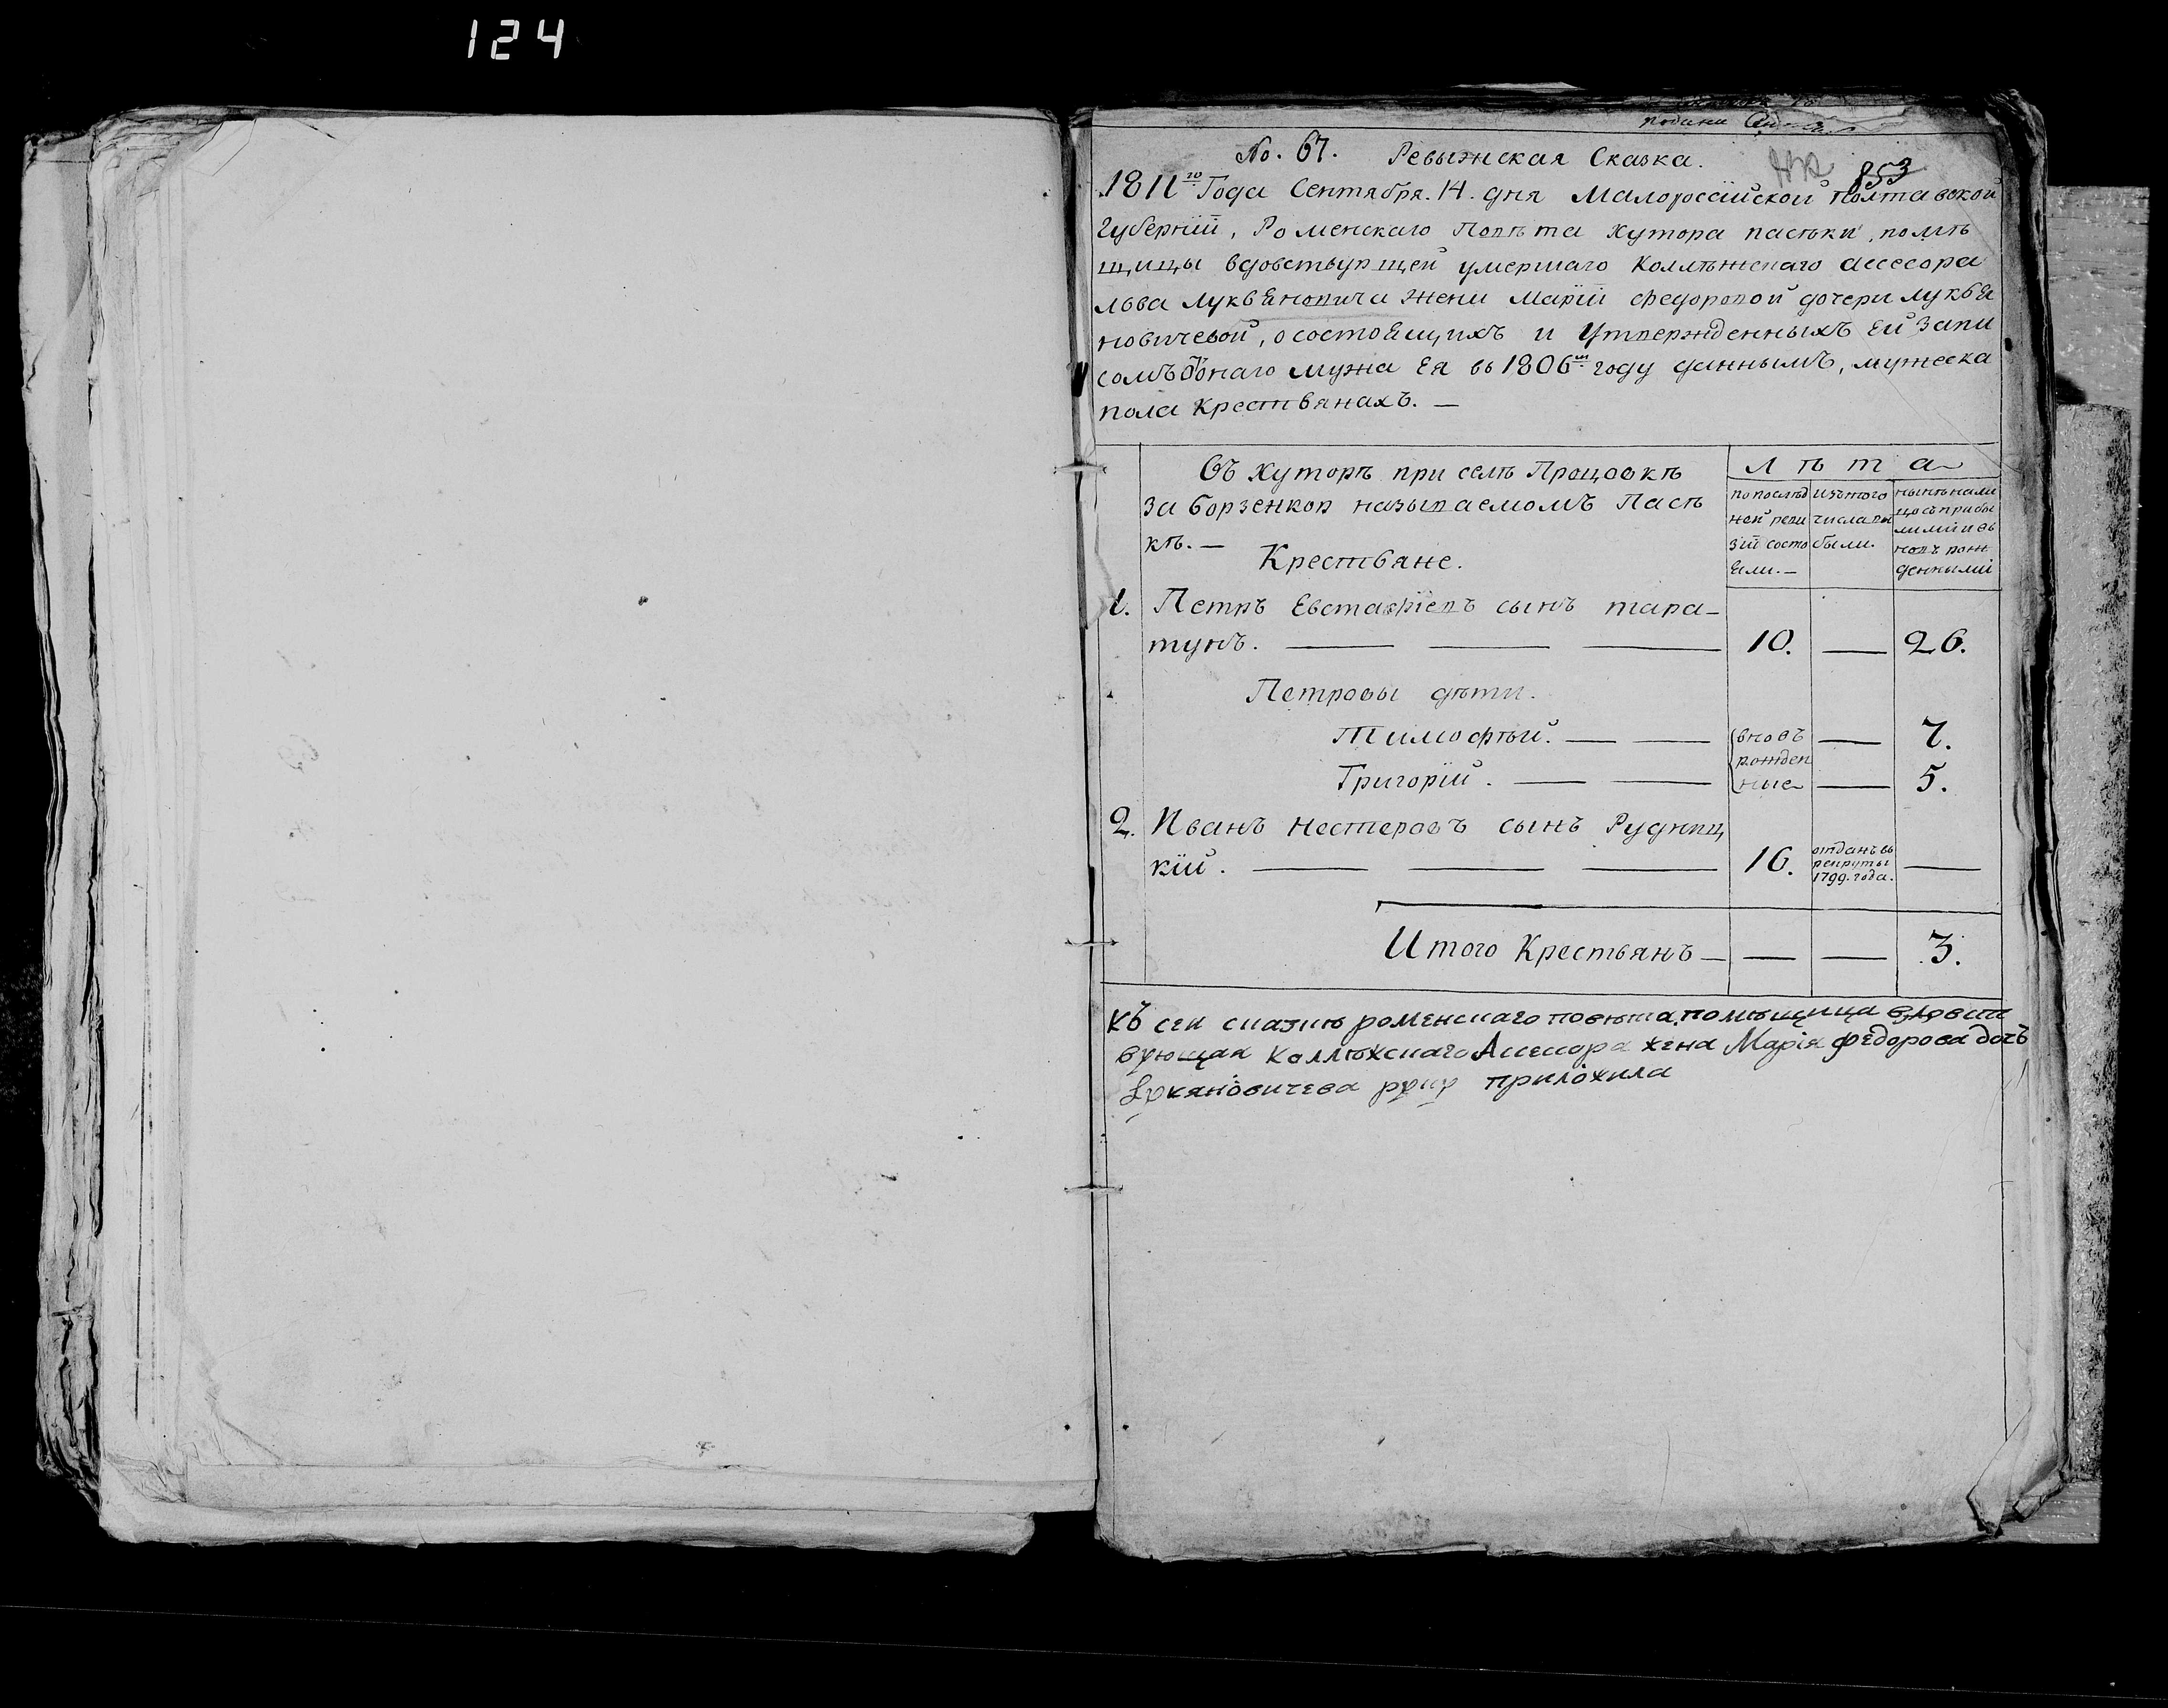 124
No. 67. Ревыжская Сказка.
853
1811го Года Сентября. 14. дня Малороссійской Полтавской
Губерніи, Роменскаго Повѣта Хутора пасѣки, помѣ
щицы вдовствующей умершаго Коллѣжскаго Ассесора
льва лукьяновича жены Маріи федоровой дочери лукья
новичевой, о состоящихъ и Утвержденныхъ ей запи
сомъ онаго мужа ея въ 1806м году даннымъ, мужеска
пола Крестьянахъ. —
Въ хуторѣ при селѣ Процовкѣ
за борзенков называемомъ Пасѣ
кѣ. —
Крестьяне.
Л ѣ т а
по послѣд
ней реви
зіи состо
яли. —
изъ того
числа вы
были.
нынѣ нали
цо съ прибы
лими и въ
новъ рож
денными
1. Петръ Евстафіевъ сынъ тара-
тунъ. — — — 10. — 26.
Петровы дѣти.
Тимофѣй. — — вновь — 7.
рожден
Григорій. — — ные — 5.
2. Иванъ Нестеровъ сынъ Рудниц
кій. — — — 16. отданъ въ рекруты 1799. года. —
Итого Крестьянъ — — — 3.
Къ сей сказкѣ роменскаго повѣта помѣщица вдовст
вующая Коллѣжскаго Асессора жена Марія федорова дочъ
Лукяновичева руку приложила